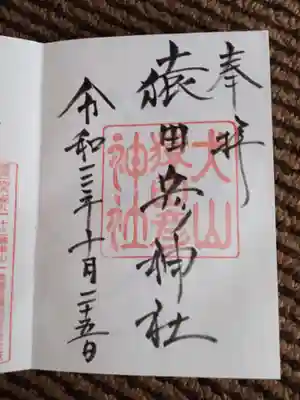 奉拝
猿田彦神社
令和三年十月二十五日
大山
神社